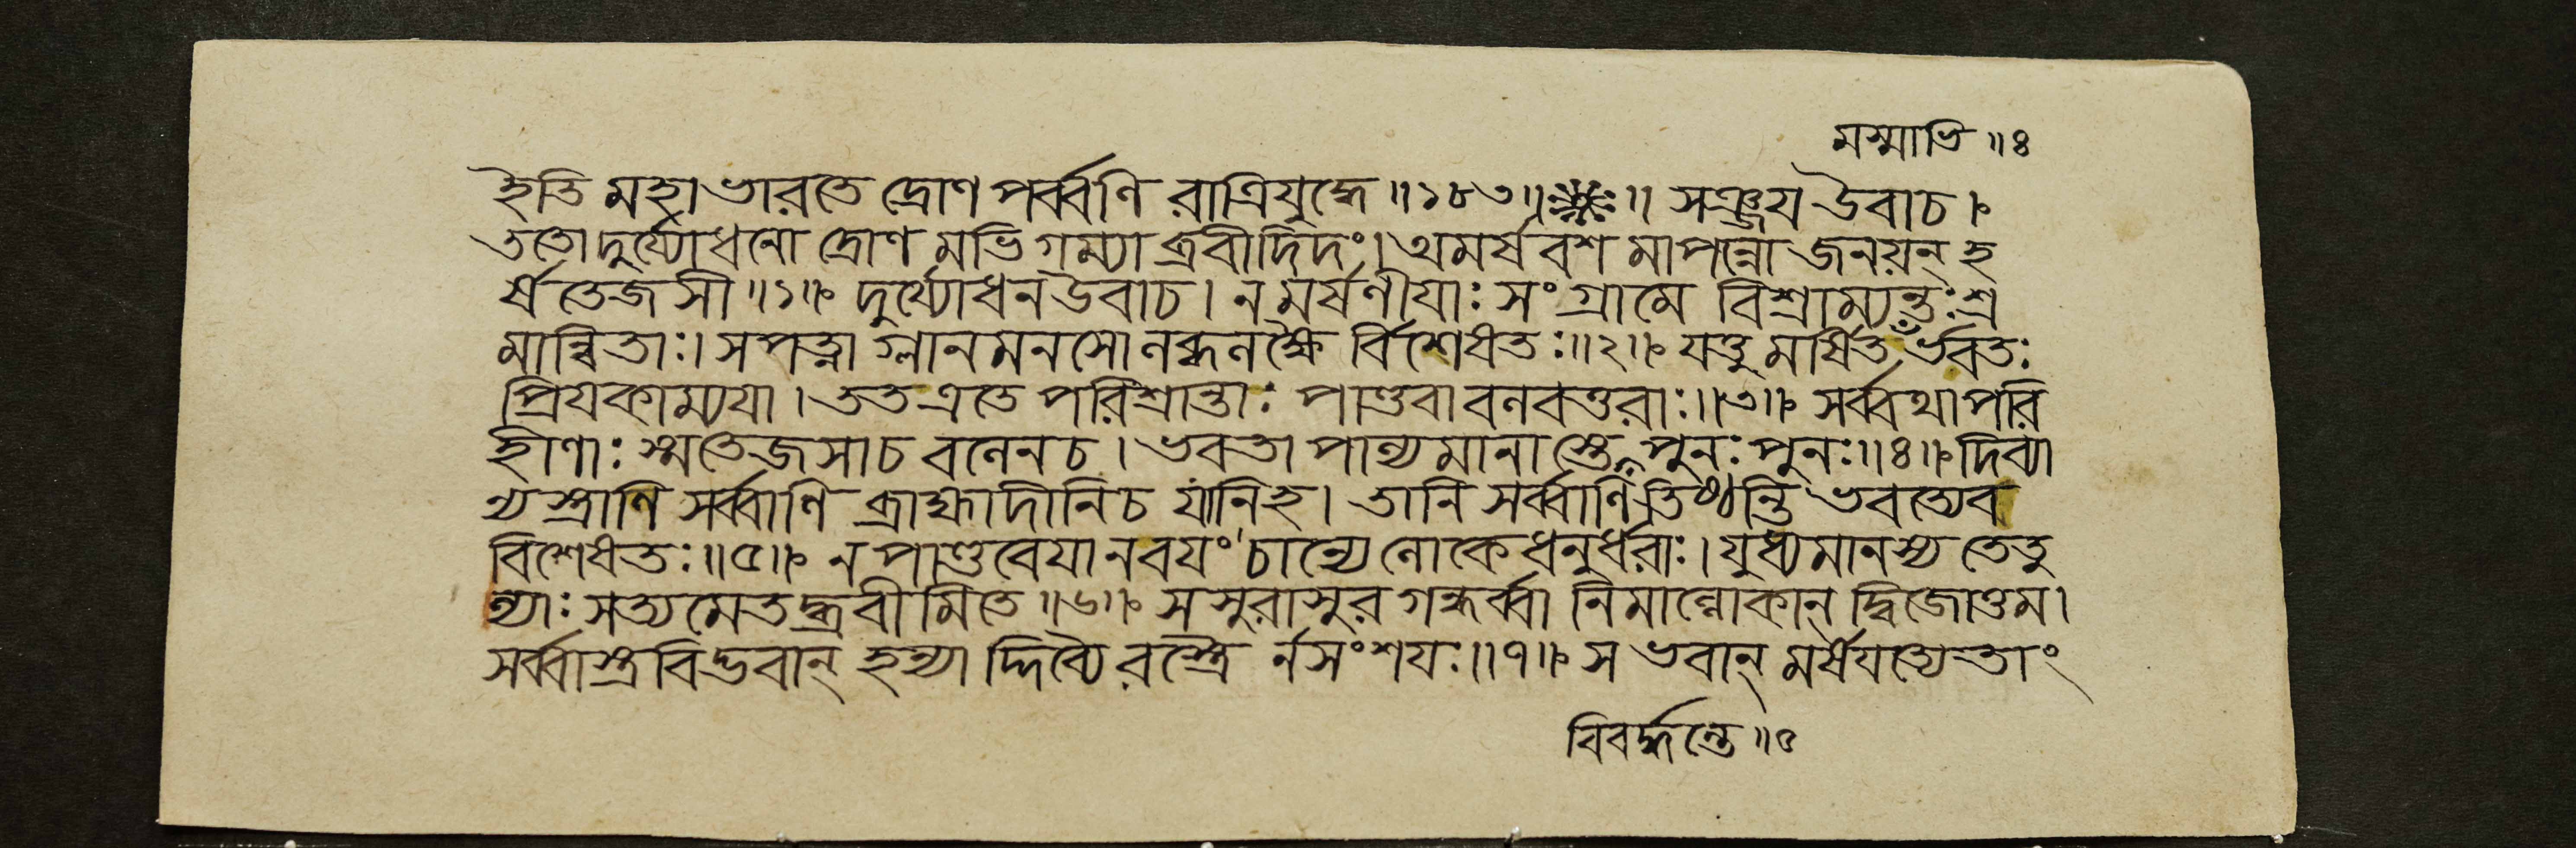 মস্মাভি ॥৪
ইতি মহাভারতে দ্রোণপর্ব্বণি রাত্রিযুদ্ধে ॥১৮৩॥ ॥ সঞ্জয উবাচ ।
ততো দুর্য্যোধনো দ্রোণমভিগম্যাব্রবীদিদং। অমর্ষবশমাপন্নো জনয়ন্ হ
র্ষতেজসী ॥১॥ দুর্য্যোধন উবাচ । ন মর্ষণীযাঃ সংগ্রামে বিশ্রাম্যন্তঃ শ্র
মান্বিতাঃ। সপত্না গ্লানমনসো লব্ধলক্ষৈ র্বিশেষতঃ॥২॥ যত্তু মর্ষিতং ভবতঃ
প্রিযকাম্যযা । তত এতে পরিশ্রান্তাঃ পাণ্ডবা বলবত্তরাঃ॥৩॥ সর্ব্বথা পরি
হীণাঃ স্ম তেজসা চ বলেন চ । ভবতা পাল্যমানাস্তে পুনঃ পুনঃ॥৪॥ দিব্যা
ন্যস্ত্রাণি সর্ব্বাণি ব্রাহ্মাদীনি চ যানি হ । তানি সর্ব্বাণি তিষ্ঠন্তি ভবত্যেব
বিশেষতঃ॥৫॥ ন পাণ্ডবেযা ন বযং চান্যে লোকে ধনুর্ধরাঃ । যুধ্যমানস্য তে তু
ল্যাঃ সত্যমেতদ্ব্রবীমি তে ॥৬॥ সসুরাসুরগন্ধর্ব্বানিমান্লোকান্ দ্বিজোত্তম ।
সর্ব্বাস্ত্রবিদ্ভবান্ হন্যাদ্দিব্যৈরস্ত্রৈ র্নসংশযঃ॥৭॥ স ভবান্ মর্ষযত্যেতাং
বিবর্দ্ধন্তে ॥৫